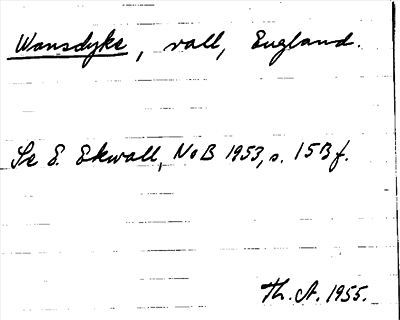 Wansdyke, vall, England.
Se E. Ekwall, NoB 1953, s. 153 f.
Th. A. 1955.